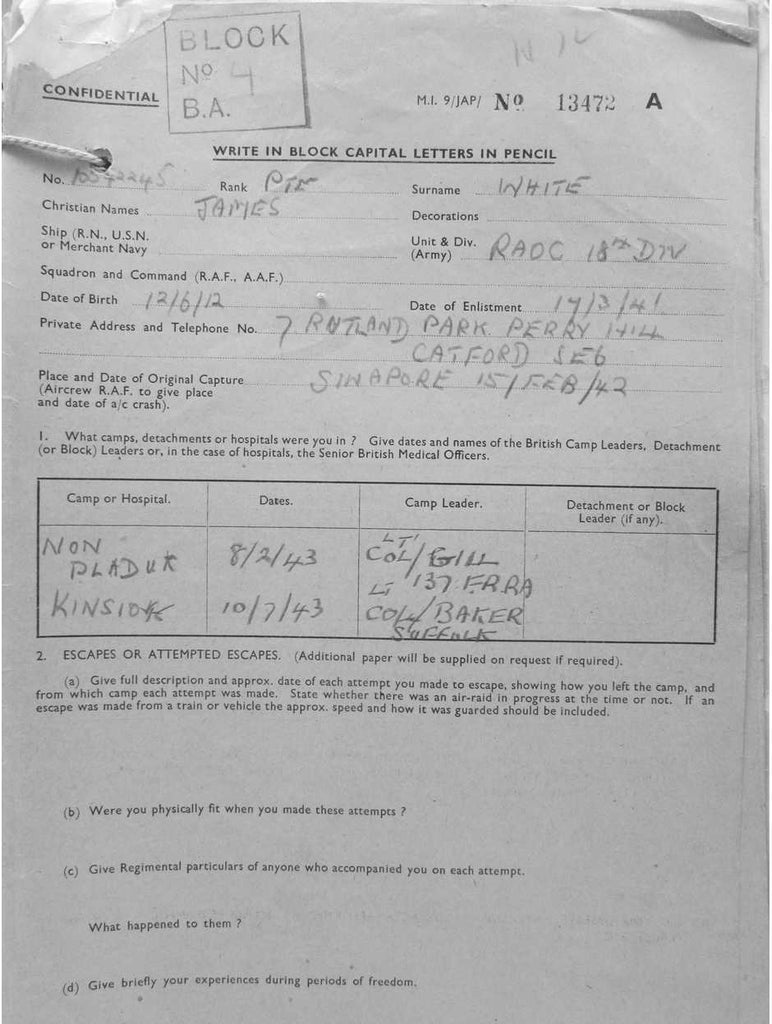 BLOCK
No 4
B.A.
CONFIDENTIAL
M.I. 9/JAP/ No 13472 A
WRITE IN BLOCK CAPITAL LETTERS IN PENCIL
No. Rank PTE Surname WHITE
Christian Names JAMES Decorations
Ship (R.N., U.S.N. or Merchant Navy Unit & Div. (Army) RAOC 18TH DIV
Squadron and Command (R.A.F., A.A.F.)
Date of Birth 12/6/12 Date of Enlistment 17/3/41
Private Address and Telephone No. 7 RUTLAND PARK PERRY HILL
CATFORD SE6
Place and Date of Original Capture SINAPORE 15/FEB/42
(Aircrew R.A.F. to give place
and date of a/c crash).
1. What camps, detachments or hospitals were you in ? Give dates and names of the British Camp Leaders, Detachment
(or Block) Leaders or, in the case of hospitals, the Senior British Medical Officers.
Camp or Hospital. Dates. Camp Leader. Detachment or Block Leader (if any).
NON PLADUK 8/2/43 LT COL/GILL 137 F.R.RA
KINSIOK 10/7/43 LT COL/BAKER SUFFOLK
2. ESCAPES OR ATTEMPTED ESCAPES. (Additional paper will be supplied on request if required).
(a) Give full description and approx. date of each attempt you made to escape, showing how you left the camp, and
from which camp each attempt was made. State whether there was an air-raid in progress at the time or not. If an
escape was made from a train or vehicle the approx. speed and how it was guarded should be included.
(b) Were you physically fit when you made these attempts ?
(c) Give Regimental particulars of anyone who accompanied you on each attempt.
What happened to them ?
(d) Give briefly your experiences during periods of freedom.